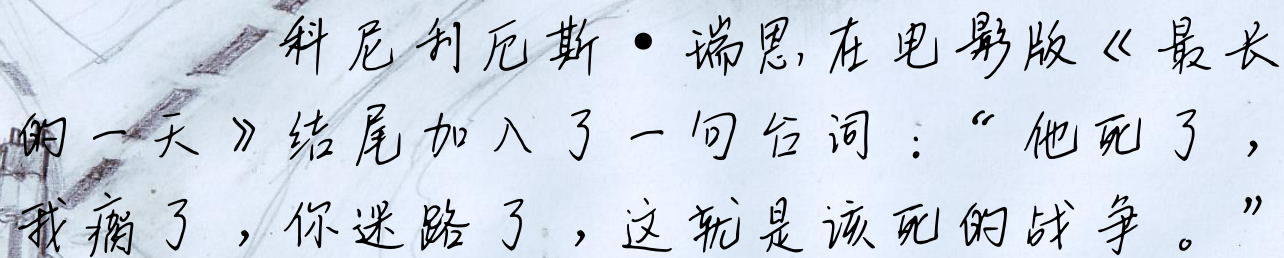 科尼利厄斯·瑞恩在电影版《最长
的一天》结尾加入了一句台词：“他死了，
我瘸了，你迷路了，这就是该死的战争。”